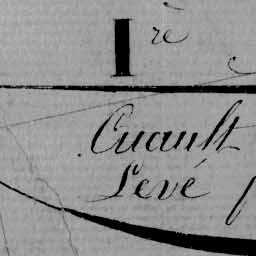 I re
Cuault
Levé